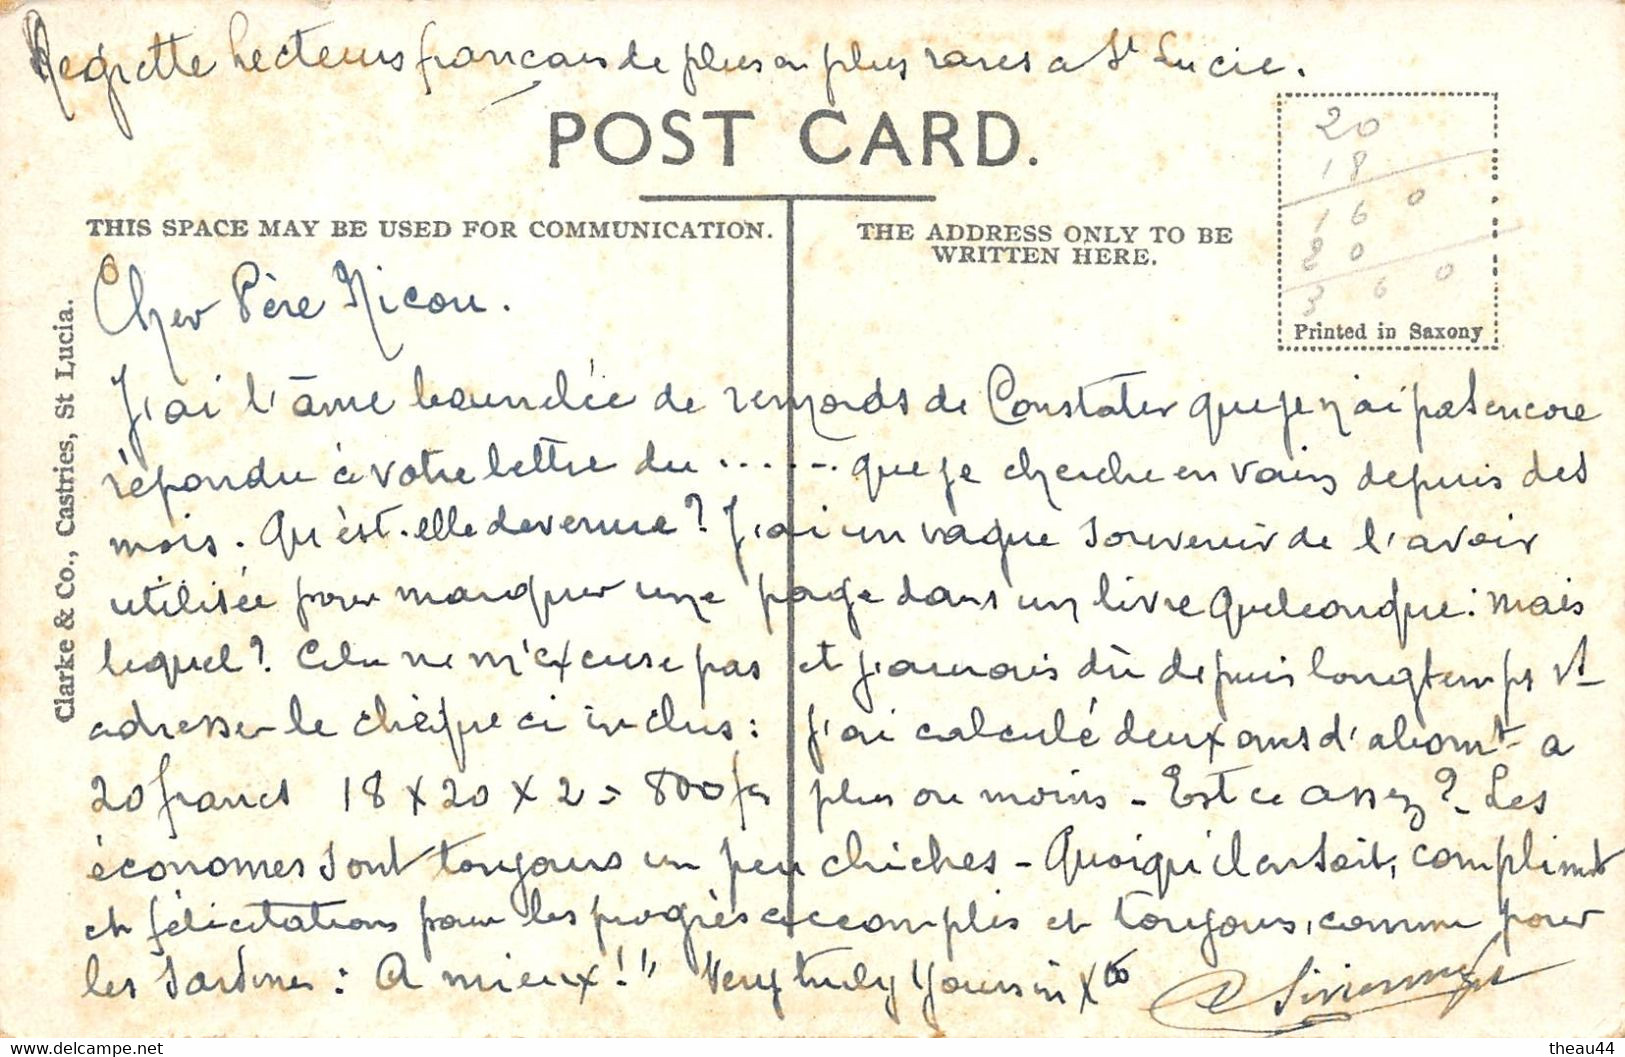 Regrette lecteurs français de plus en plus rares a St Lucie.
POST CARD.
20
18
160
20
360
Printed in Saxony
THIS SPACE MAY BE USED FOR COMMUNICATION.
THE ADDRESS ONLY TO BE
WRITTEN HERE.
Clarke & Co., Castries, St Lucia.
Cher Père Nicou.
J'ai l'âme bourrelée de remords de Constater que je n'ai pas encore
répondu à votre lettre du ...... que je cherche en vain depuis des
mois. Qu'est-elle devenue? J'ai un vague souvenir de l'avoir
utilisée pour marquer une page dans un livre quelconque: mais
lequel? Cela ne m'excuse pas et j'aurais dû depuis longtemps vs
adresser le chèque ci inclus: j'ai calculé deux ans d'abomt a
20 francs 18 x 20 x 2 = 800 frs plus ou moins - Est ce assez? - Les
économes sont toujours un peu chiches - Quoiqu'il en soit, complimts
et félicitations pour les progrès accomplis et toujours, comme pour
les : A mieux!" Very truly yours in Xto
theau44